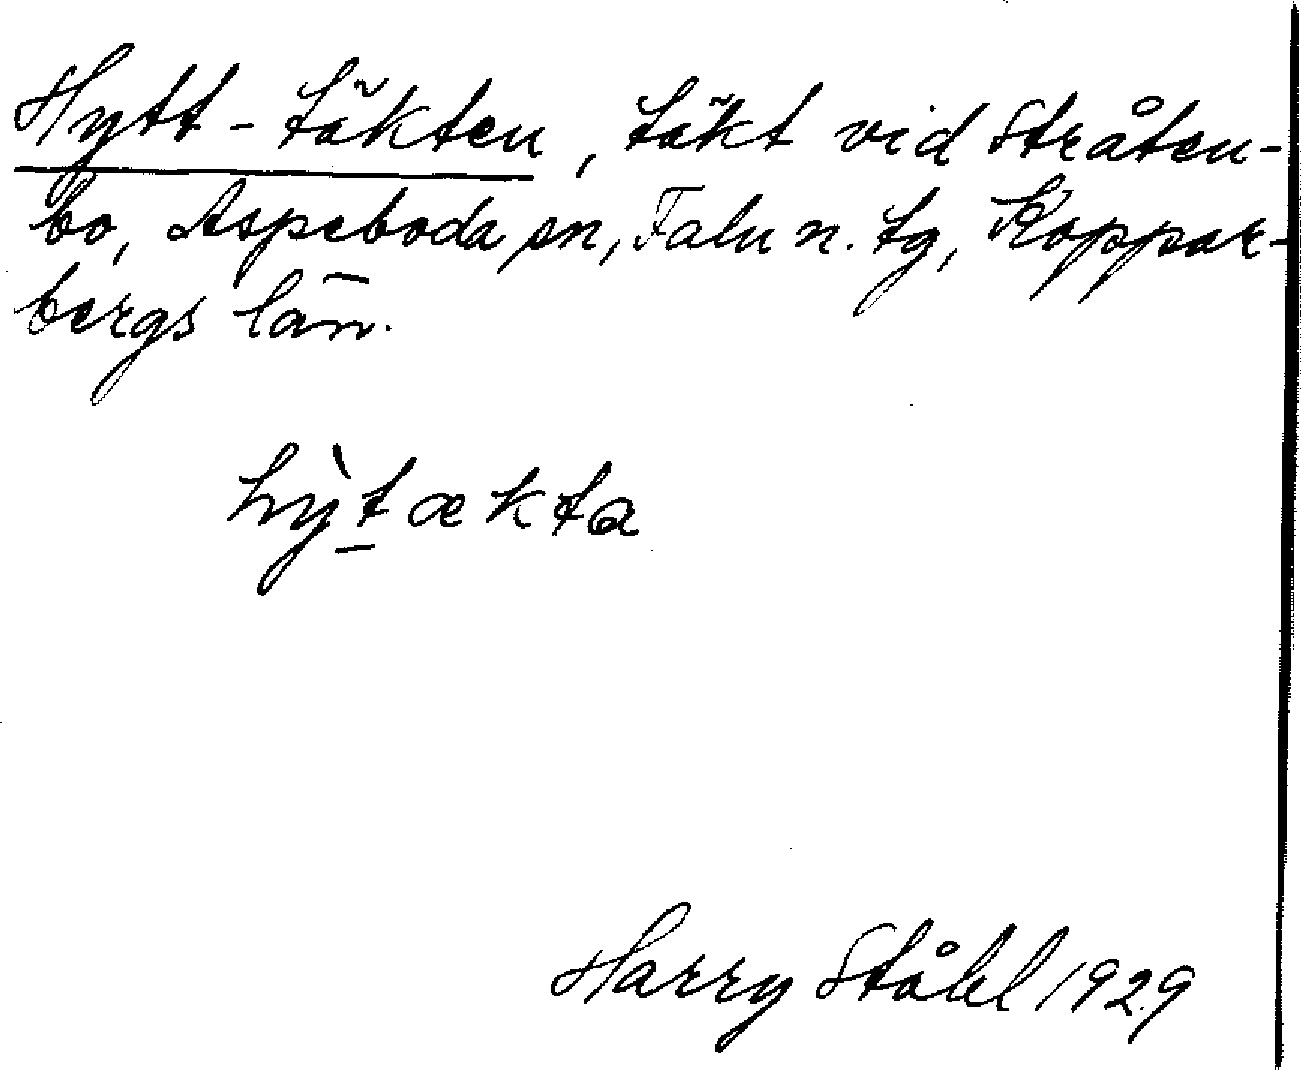 Hytt-täkten, täkt vid Stråten-
bo, Aspeboda sn, Falu n. tg, Koppar-
bergs län.
hỳt̲ækta
Harry Ståhl 1929